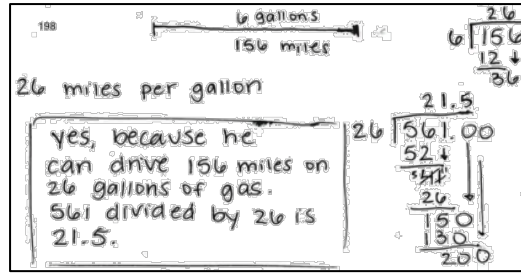 198
6 gallons
156 miles
26 miles per gallon
yes, because he
can drive 156 miles on
26 gallons of gas.
561 divided by 26 is
21.5.
26
6 156
12
36
21.5
26 561.00
52
26
150
130
200